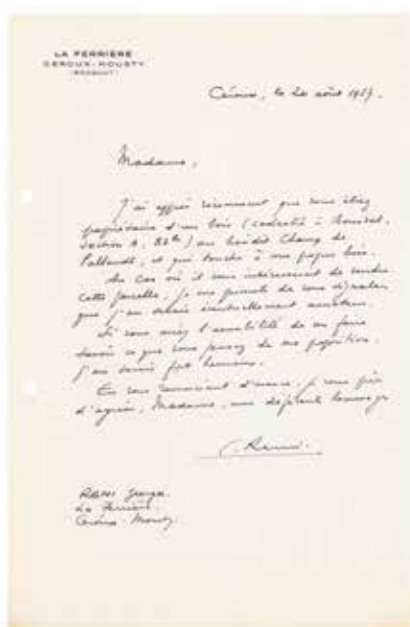 LA FERRIERE
CEROUX-MOUSTY
(BRABANT)
Céroux, le 20 août 1957.
Madame,
J'ai appris récemment que vous étiez
propriétaire d'un bois (cadastré à
Section A, ) au lieudit Champ de
, et qui touche à mes propres bois.
Au cas où il vous intéresserait de vendre
cette parcelle, je me permets de vous signaler
que j'en serais éventuellement acquéreur.
Si vous aviez l'amabilité de me faire
savoir ce que vous pensez de ma proposition,
j'en serais fort heureux.
En vous remerciant d'avance, je vous prie
d'agréer, Madame, mes déférents hommages
Remi
REMI Georges
La Ferrière
Céroux-Mousty